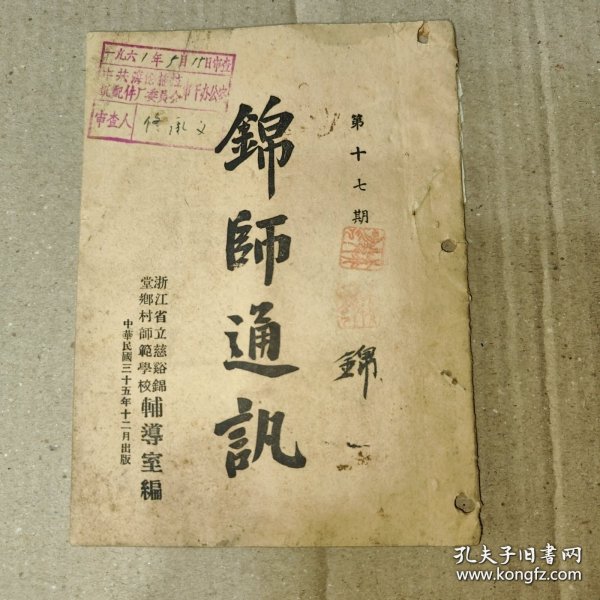 第十七期
錦師通訊
浙江省立慈谿錦
堂鄉村師範學校
輔導室編
中華民國三十五年十二月出版
錦一
一九六1年5月15日审查
审查人
孔夫子旧书网
www.kongfz.com